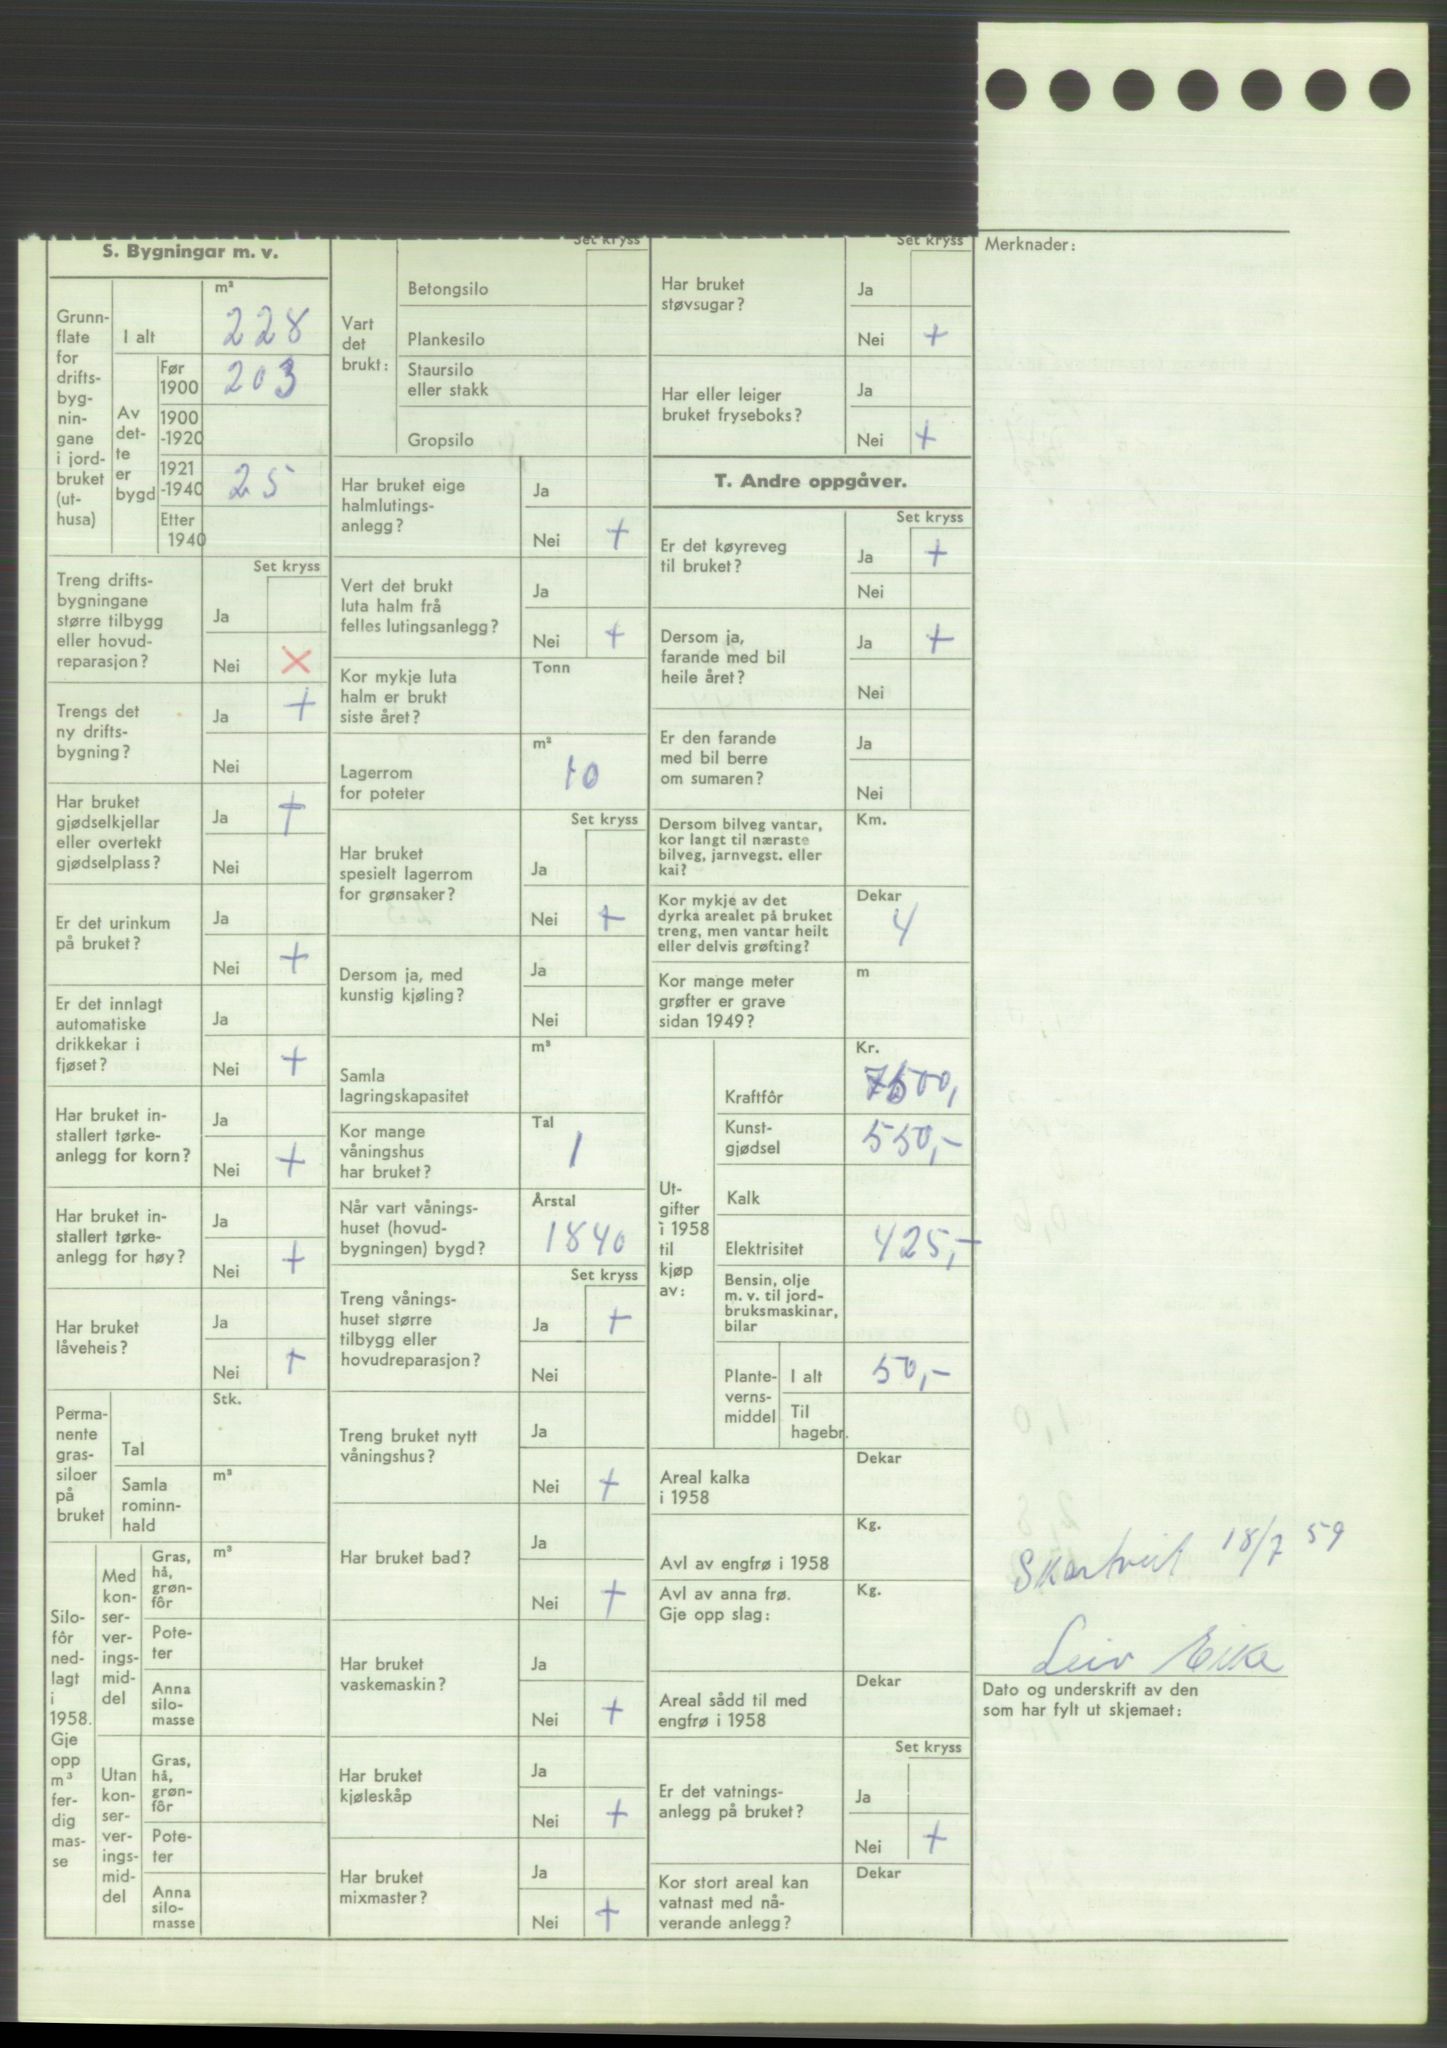 S. Bygningar m. v.
Grunn-
flate
for
drifts-
byg-
nin-
gane
i jord-
bruket
(ut-
husa)
m²
I alt 228
Av
det-
te
er
bygd
Før
1900 203
1900
-1920
1921
-1940 25
Etter
1940
Set kryss
Treng drifts-
bygningane
større tilbygg
eller hovud-
reparasjon?
Ja
Nei X
Trengs det
ny drifts-
bygning?
Ja +
Nei
Har bruket
gjødselkjellar
eller overtekt
gjødselplass?
Ja +
Nei
Er det urinkum
på bruket?
Ja
Nei +
Er det innlagt
automatiske
drikkekar i
fjøset?
Ja
Nei +
Har bruket in-
stallert tørke-
anlegg for korn?
Ja
Nei +
Har bruket in-
stallert tørke-
anlegg for høy?
Ja
Nei +
Har bruket
låveheis?
Ja
Nei +
Perma-
nente
gras-
siloer
på
bruket
Stk.
Tal
m³
Samla
rominn-
hald
Silo-
fôr
ned-
lagt
i
1958.
Gje
opp
m³
fer-
dig
mas-
se
Med
kon-
ser-
ver-
ings-
mid-
del
m³
Gras,
hå,
grøn-
fôr
Pote-
ter
Anna
silo-
masse
Utan
kon-
ser-
ver-
ings-
mid-
del
Gras,
hå,
grøn-
fôr
Pote-
ter
Anna
silo-
masse
Set kryss
Vart
det
brukt:
Betongsilo
Plankesilo
Staursilo
eller stakk
Gropsilo
Har bruket eige
halmlutings-
anlegg?
Ja
Nei +
Vert det brukt
luta halm frå
felles lutingsanlegg?
Ja
Nei +
Kor mykje luta
halm er brukt
siste året?
Tonn
Lagerrom
for poteter
m²
10
Set kryss
Har bruket
spesielt lagerrom
for grønsaker?
Ja
Nei +
Dersom ja, med
kunstig kjøling?
Ja
Nei
Samla
lagringskapasitet
m³
Kor mange
våningshus
har bruket?
Tal
1
Når vart vånings-
huset (hovud-
bygningen) bygd?
Årstal
1840
Set kryss
Treng vånings-
huset større
tilbygg eller
hovudreparasjon?
Ja +
Nei
Treng bruket nytt
våningshus?
Ja
Nei +
Har bruket bad?
Ja
Nei +
Har bruket
vaskemaskin?
Ja
Nei +
Har bruket
kjøleskåp
Ja
Nei +
Har bruket
mixmaster?
Ja
Nei +
Set kryss
Har bruket
støvsugar?
Ja
Nei +
Har eller leiger
bruket fryseboks?
Ja
Nei +
T. Andre oppgåver.
Set kryss
Er det køyreveg
til bruket?
Ja +
Nei
Dersom ja,
farande med bil
heile året?
Ja +
Nei
Er den farande
med bil berre
om sumaren?
Ja
Nei
Dersom bilveg vantar,
kor langt til næraste
bilveg, jarnvegst. eller
kai?
Km.
Kor mykje av det
dyrka arealet på bruket
treng, men vantar heilt
eller delvis grøfting?
Dekar
4
Kor mange meter
grøfter er grave
sidan 1949?
m
Ut-
gifter
i 1958
til
kjøp
av:
Kr.
Kraftfôr
Kunst-
gjødsel 550,-
Kalk
Elektrisitet 425,-
Bensin, olje
m. v. til jord-
bruksmaskinar,
bilar
Plante-
verns-
middel
I alt 50,-
Til
hagebr.
Areal kalka
i 1958
Dekar
Avl av engfrø i 1958
Kg.
Avl av anna frø.
Gje opp slag:
Kg.
Areal sådd til med
engfrø i 1958
Dekar
Set kryss
Er det vatnings-
anlegg på bruket?
Ja
Nei +
Kor stort areal kan
vatnast med nå-
verande anlegg?
Dekar
Merknader:
Skartveit 18/7 59
Leiv Eike
Dato og underskrift av den
som har fylt ut skjemaet: